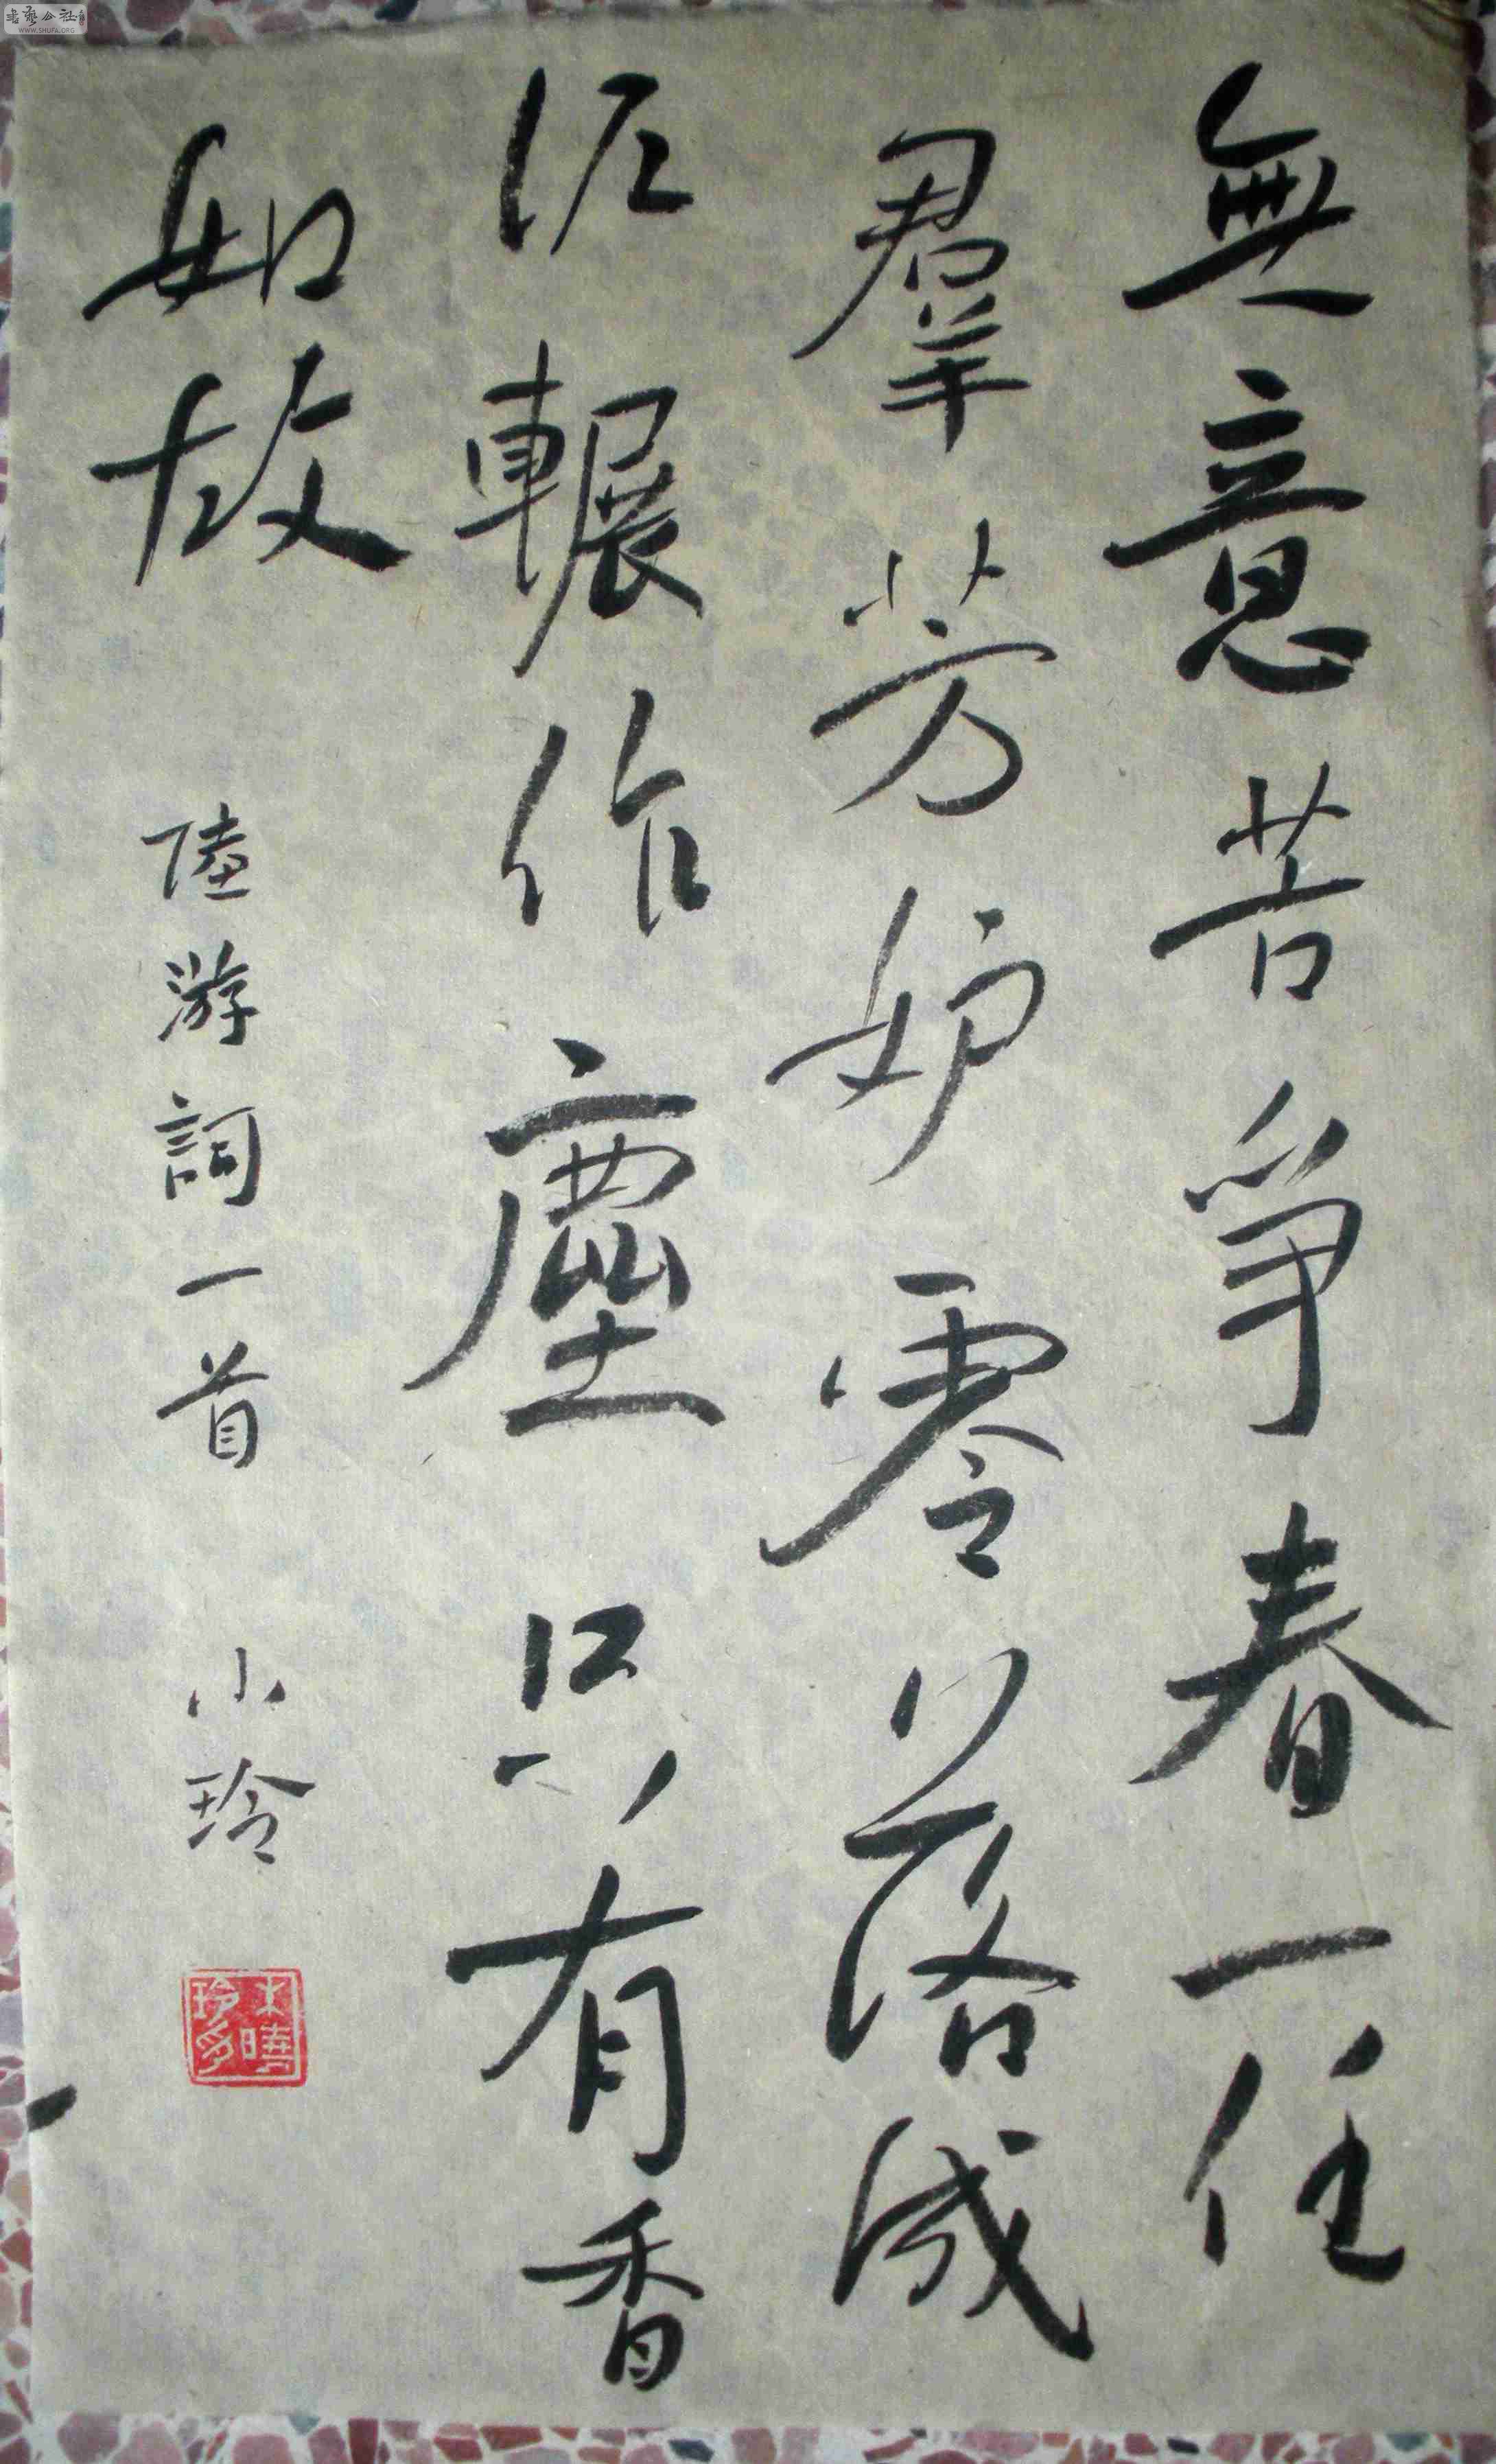 無意苦爭春一任
羣芳妒零落成
泥輾作塵只有香
如故
陸游詞一首
小玲
WWW.SHUFA.ORG